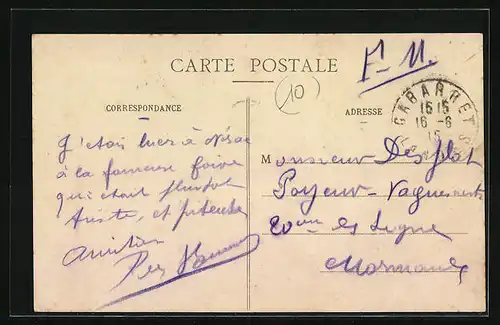 F-M.
CARTE POSTALE
(10)
CORRESPONDANCE
ADRESSE
GABARRET
16 15
16 -6
15
J'etais hier à Nérac
à la fameuse foire
qui était plutot
triste, et
Amitiés
Monsieur Desplat
Payeur-Vaguemestre
20eme de Ligne
Marmande